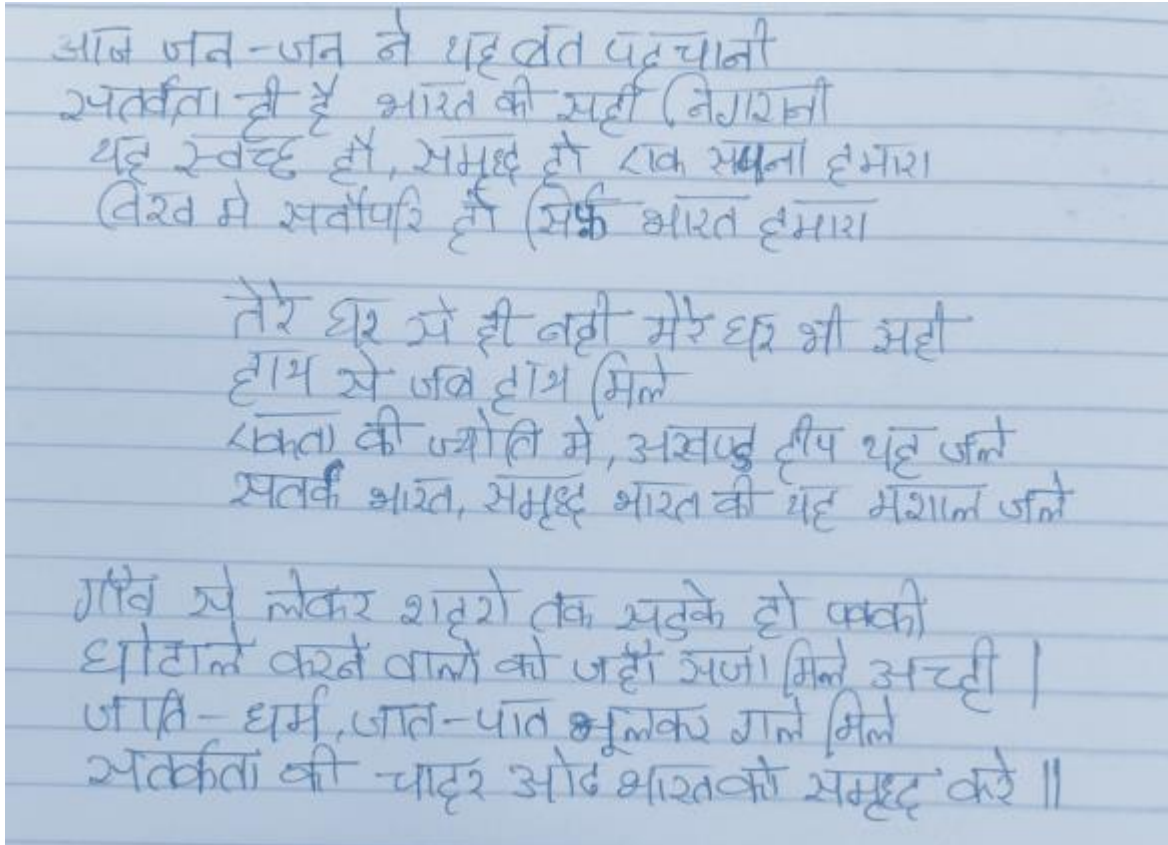 आज जन-जन ने यह बात पहचानी
सतर्कता ही है भारत की सही निगरानी
यह स्वच्छ हो, समृध्द हो एक सपना हमारा
विश्व मे सर्वोपरि हो सिर्फ भारत हमारा
तेरे घर से ही नही मेरे घर भी सही
हाथ से जब हाथ मिले
एकता की ज्योति मे, अखण्ड दीप यह जले
सतर्क भारत, समृध्द भारत की यह मशाल जले
गाँव से लेकर शहरो तक सडके हो पक्की
घोटाले करने वालो को जहाँ सजा मिले अच्छी |
जाति-धर्म, जात-पात भूलकर गले मिले
सतर्कता की चादर ओढ भारत को समृध्द करे ||